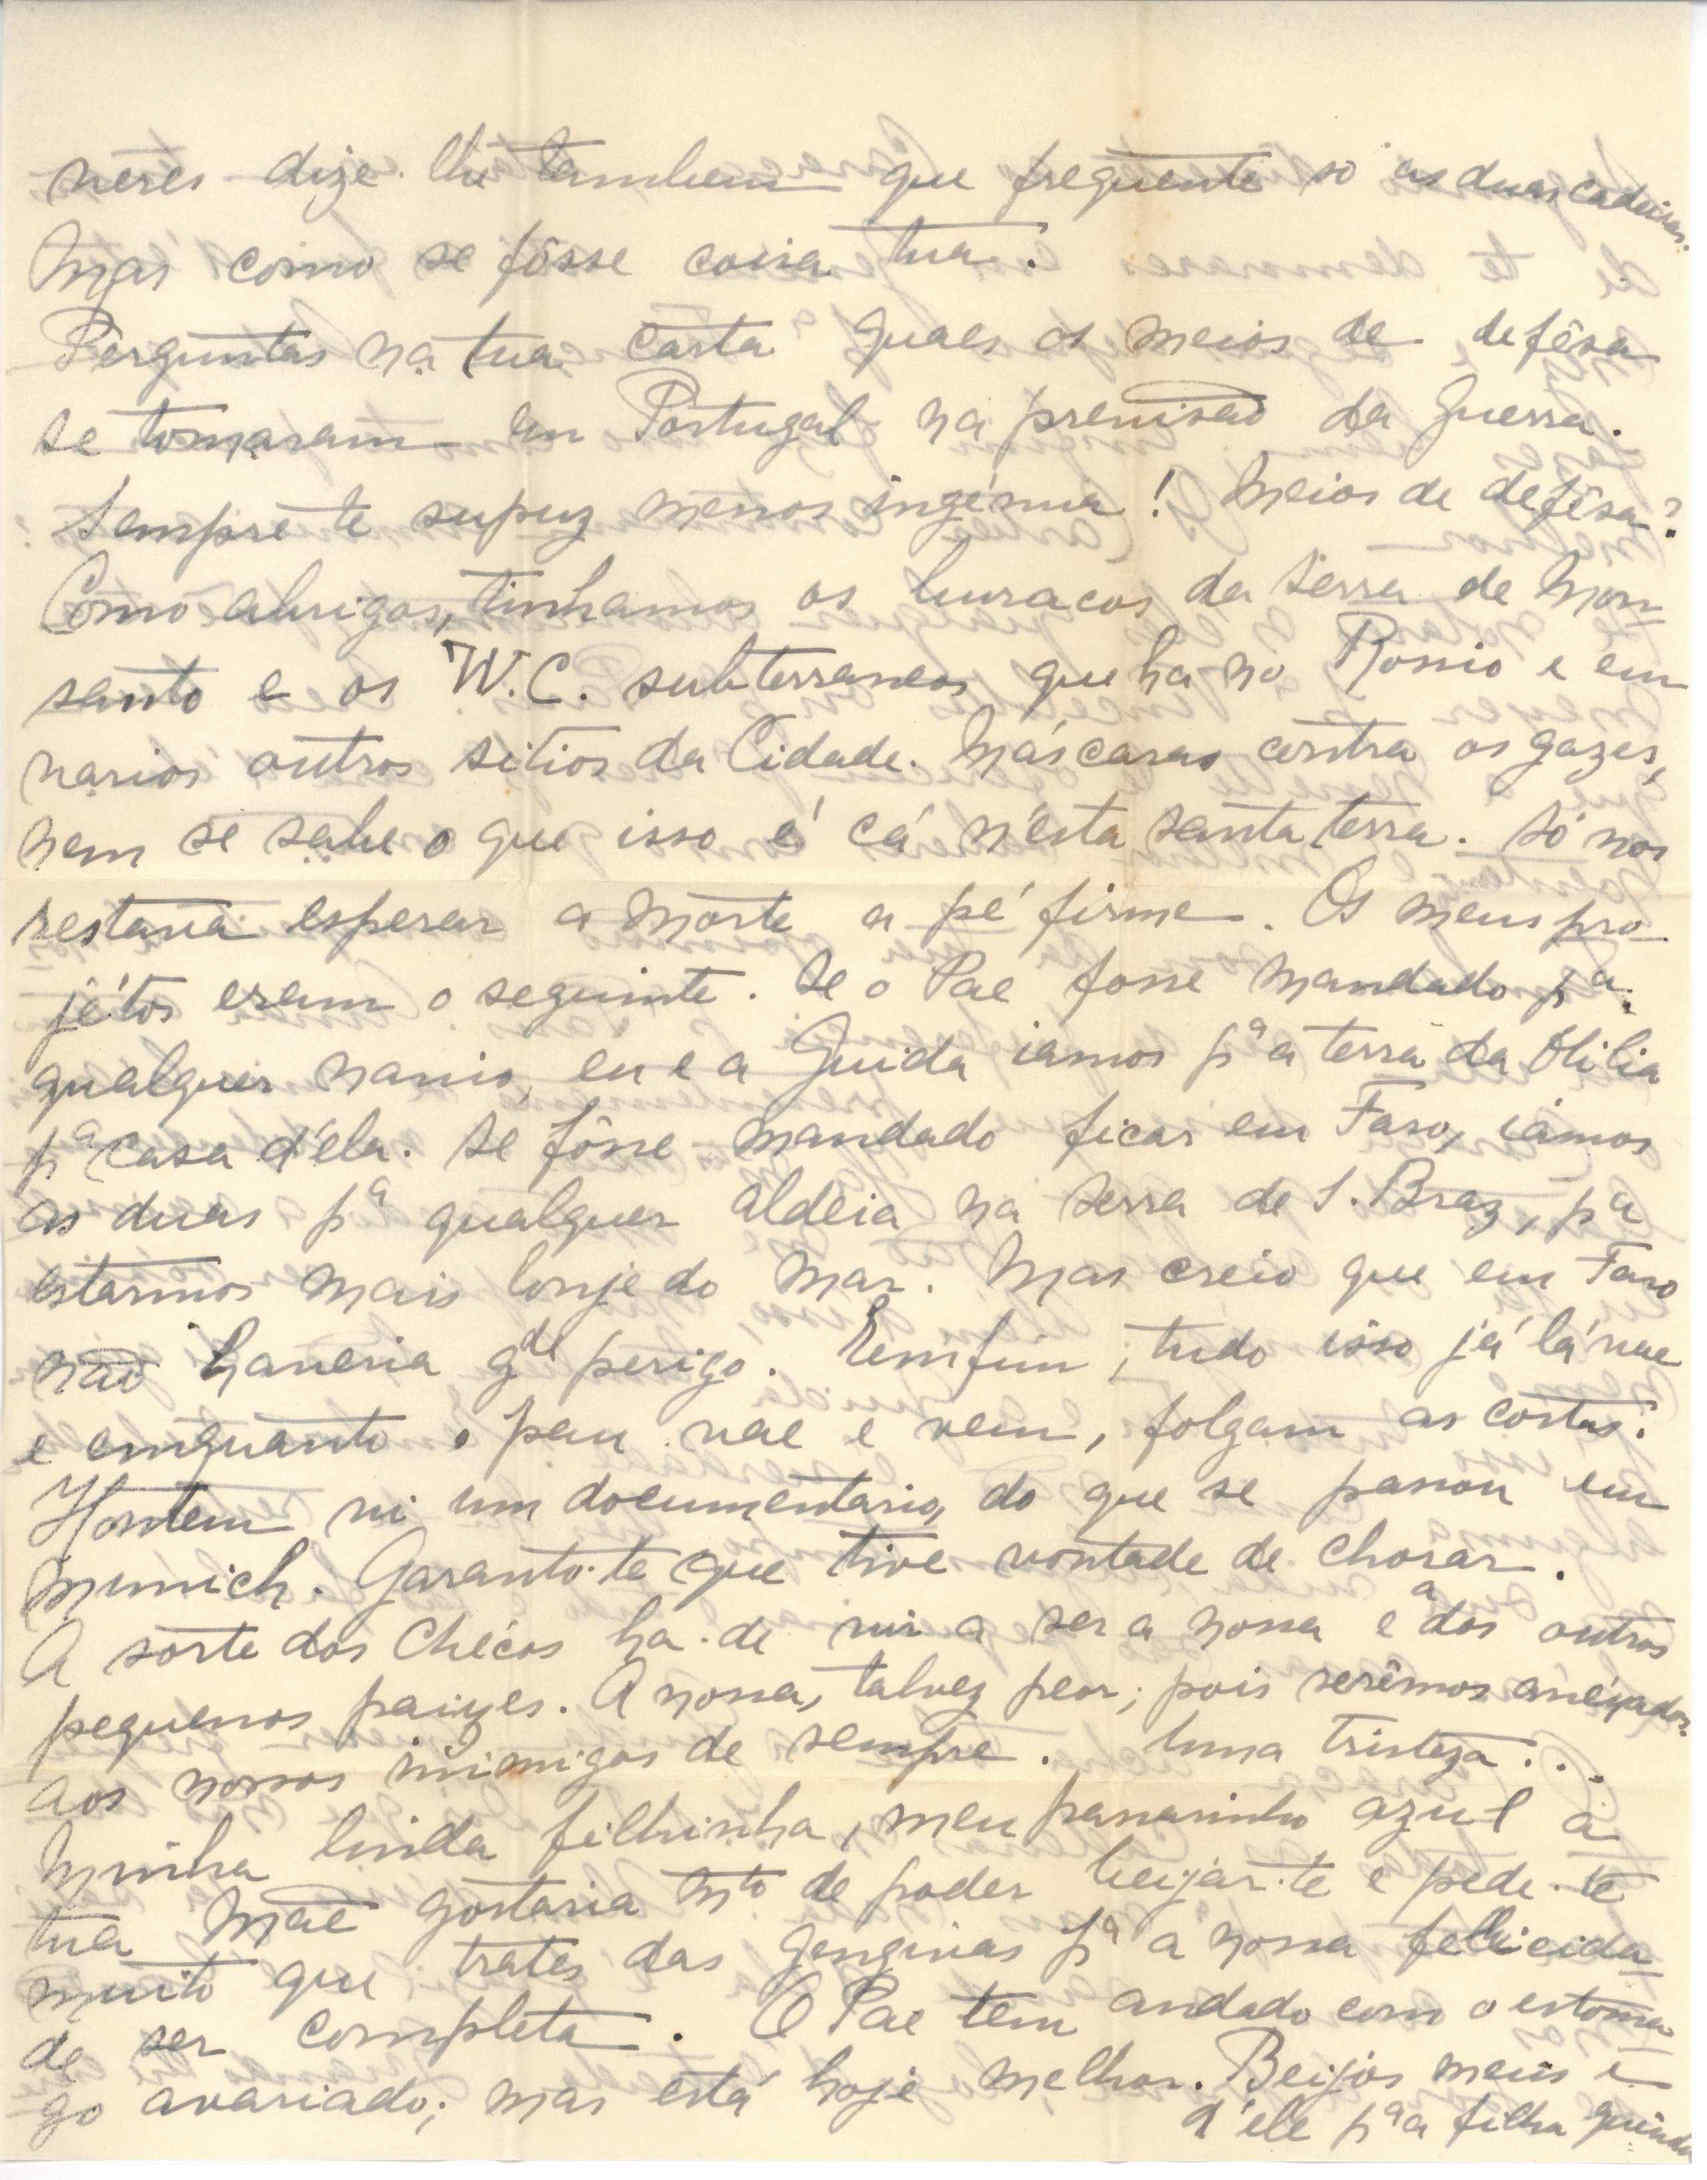 veres dize-lhe tambem que freqüente só as duas cadeiras.
Mas como se fôsse coisa tua.
Perguntas na tua carta quaes os meios de defêsa
se tomaram em Portugal na previsão da Guerra.
Sempre te supuz menos ingénua! Meios de defêsa?
Como abrigos, tinhamos os buracos da Serra de Mon-
santo e os W.C. subterraneos que ha no Rossio e em
varios outros sitios da Cidade. Máscaras contra os gazes,
nem se sabe o que isso é cá n'esta santa terra. Só nos
restava esperar a morte a pé firme. Os meus pro-
jétos eram o seguinte. Se o Pae fosse mandado pª
qualquer navio, eu e a Guida iamos pª a terra da Otilia
pª casa d'éla. Se fôsse mandado ficar em Faro, iamos
as duas pª qualquer aldeia na serra de S. Braz, pª
estarmos mais lonje do mar. Mas creio que em Faro
não haveria gde perigo. Emfim, tudo isso já lá vae
e emquanto o pau vae e vem, folgam as costas.
Hontem vi um documentario do que se passou em
Munich. Garanto-te que tive vontade de chorar.
A sorte dos Chécos ha-de vir a ser a nossa e a dos outros
pequenos paizes. A nossa, talvez peor; pois serêmos anéxados
aos nossos inimigos de sempre. Uma tristeza...
Minha linda filhinha, meu passarinho azul a
tua Mãe gostaria mto de poder beijar-te e pede-te
muito que trates das gengivas pª a nossa felicida-
de ser completa. O Pae tem andado com o estoma-
go avariado; mas está hoje melhor. Beijos meus e
d'ele pª a filha quérida